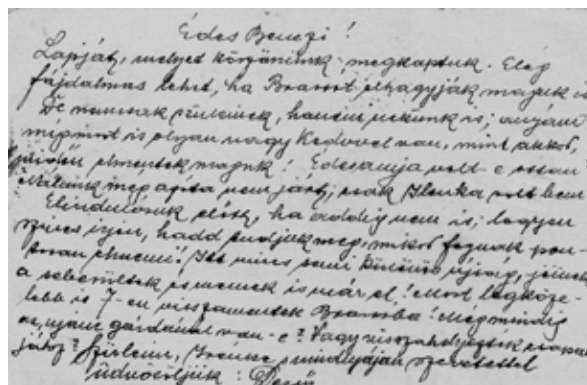 Édes Benczi!
Lapját, melyet köszönünk, megkaptuk. Elég
fájdalmas lehet, ha Brassót elhagyják maguk is
De nemcsak szüleinek, hanem nekünk is; anyám
megint is olyan nagy kedvvel van, mint akkor,
mikor elmentek maguk! Édesanyja volt-e ottan
Nálunk még apja nem járt, csak Ilonka volt benn
Elindulásuk előtt, ha addig nem is, legyen
szíves írjon, hadd tudjuk meg, mikor fognak pon-
tosan elmenni! Itt nincs semmi különös újság, jönnek
a sebesültek is mennek is már el! Most legköze-
lebb is 7-en visszamentek Brassóba! Még mindig
az gárdánál van-e?
játsz? Szüleim, szeretettel
üdvözöljük: